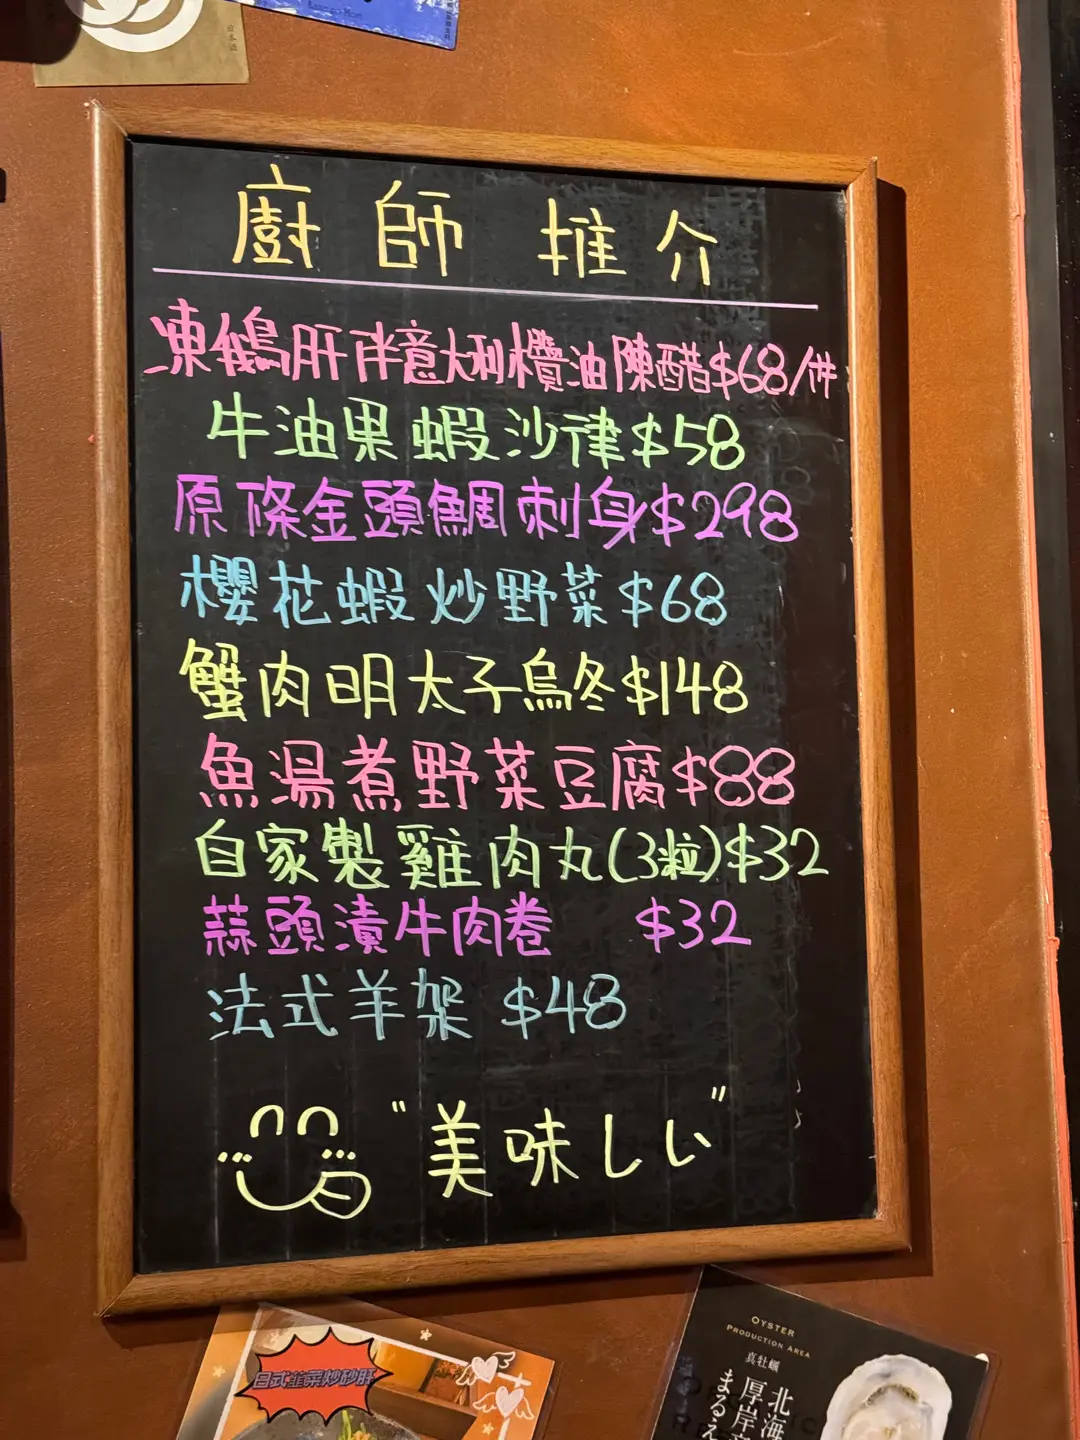 廚師推介
凍鵝肝伴意大利欖油陳醋$68/件
牛油果蝦沙律$58
原條金頭鯛刺身$298
櫻花蝦炒野菜$68
蟹肉明太子烏冬$148
魚湯煮野菜豆腐$88
自家製雞肉丸(3粒)$32
蒜頭漬牛肉卷 $32
法式羊架 $48
"美味しい"
日式韮菜炒砂肝
OYSTER
PRODUCTION AREA
真牡蠣
北海
厚岸
まるえ